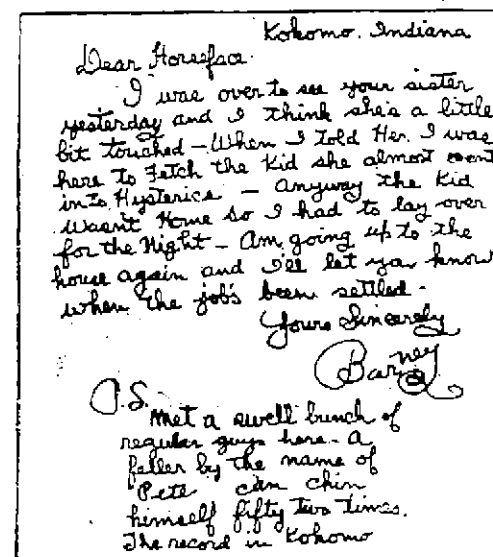 Kokomo. Indiana
Dear Horseface.
I was over to see your sister
yesterday and I think she's a little
bit touched - When I Told Her I was
here to Fetch the Kid she almost went
into Hysterics - Anyway the Kid
Wasn't Home so I had to lay over
for the Night - Am going up to the
house again and I'll let you know
when the job's been settled.
Yours Sincerely
Barney
P.S.
Met a swell bunch of
regular guys here - a
feller by the name of
Pete can chin
himself fifty two times.
The record in Kokomo